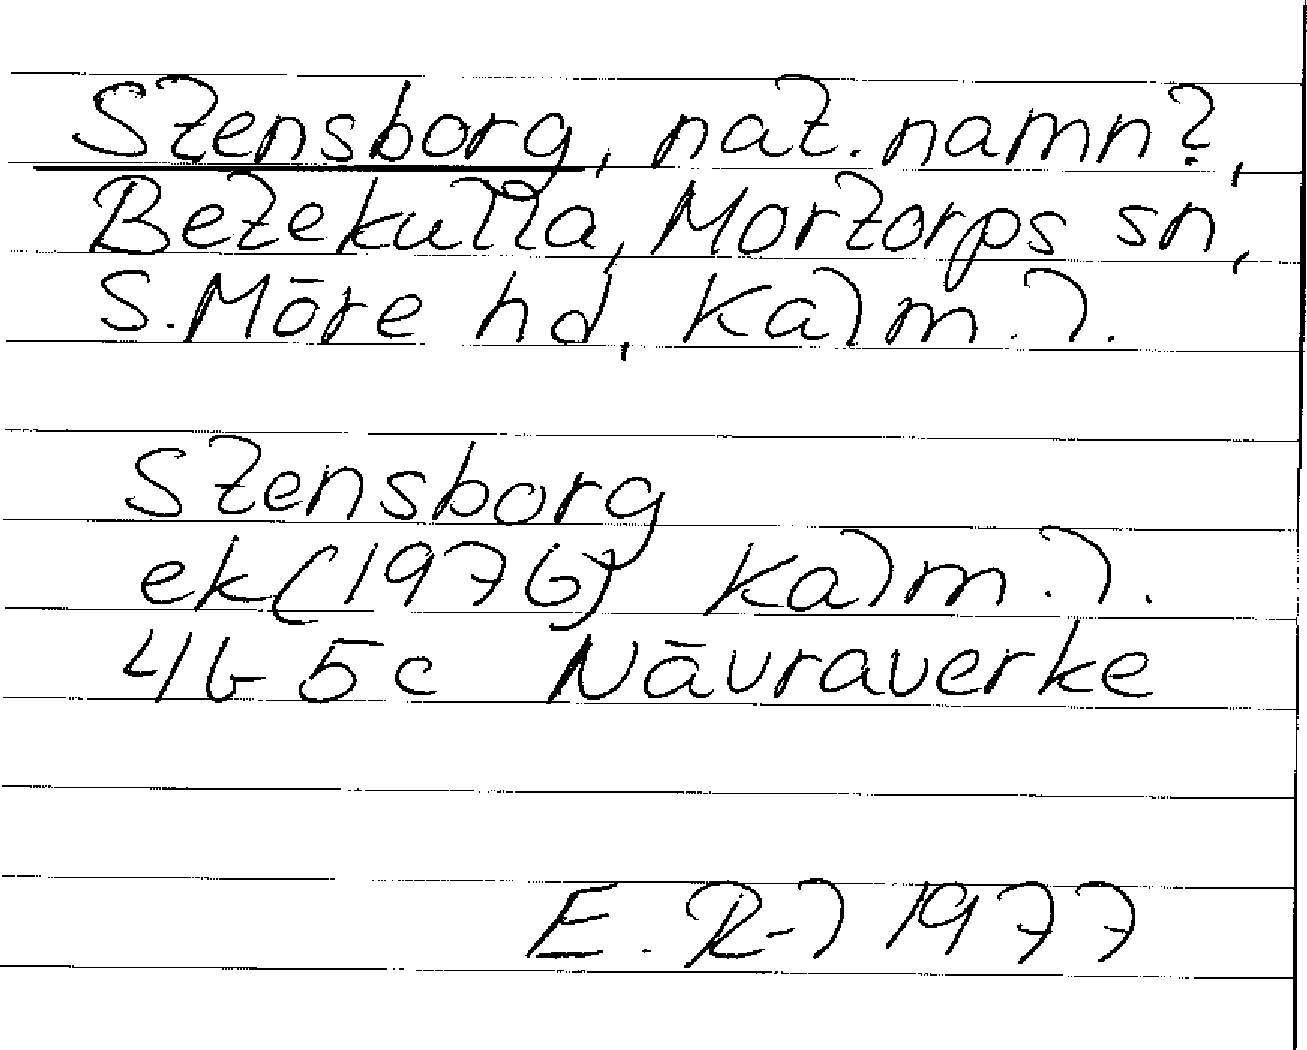 Stensborg, nat. namn?,
Betekulla, Mortorps sn,
S. Möre hd, Kalm. l.
Stensborg
ek (1976) Kalm. l.
4G 5c Nävraverke
E. R-l 1977